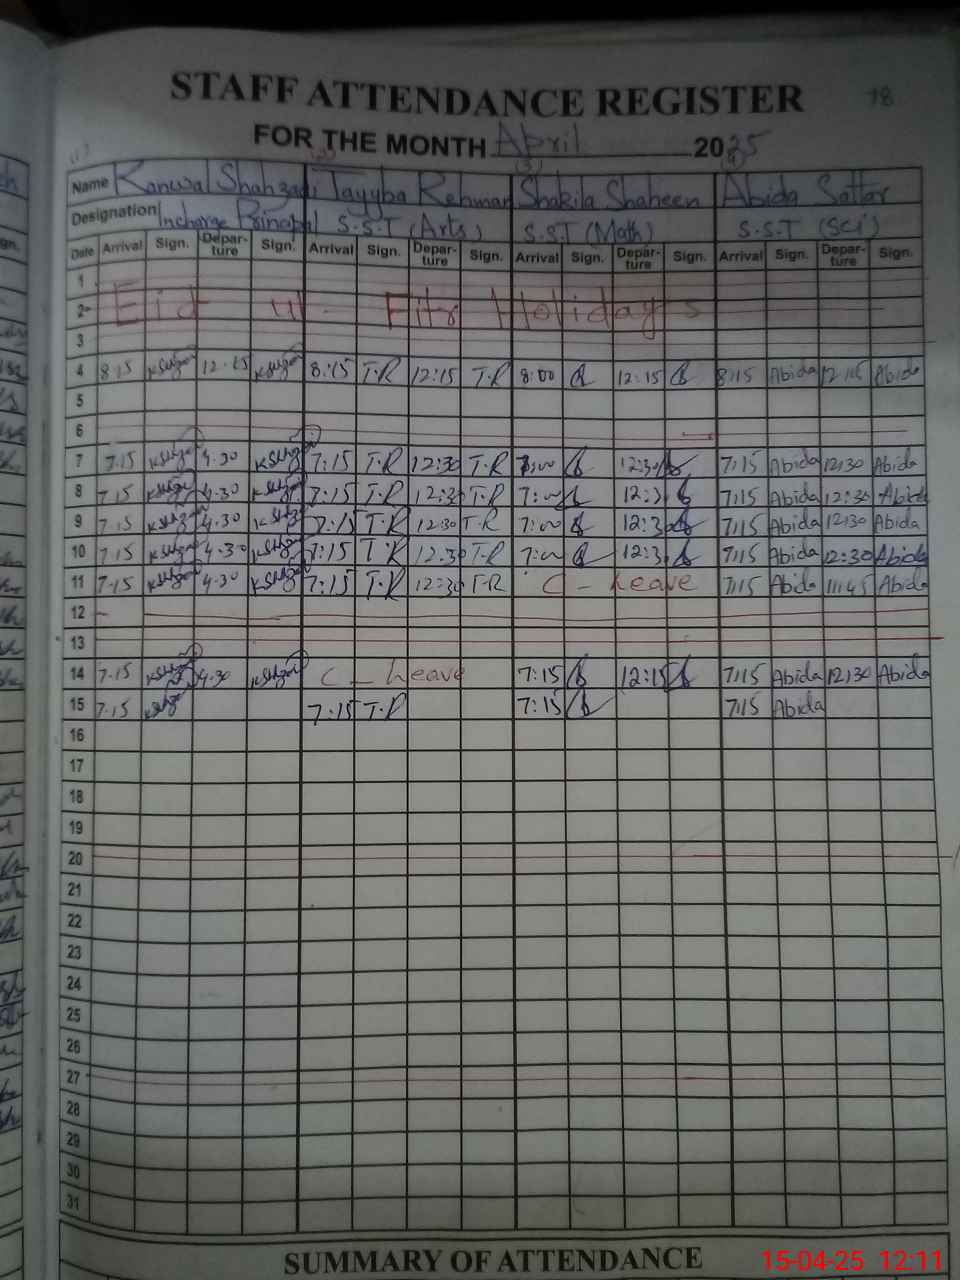 18
STAFF ATTENDANCE REGISTER
FOR THE MONTH April 2025
Name Kanwal Shahzadi Tayyba Rehman Shakila Shaheen Abida Sattar
Designation Incharge Principal S.S.T (Arts) S.S.T (Math) S.S.T (Sci)
Date Arrival Sign. Depar-ture Sign. Arrival Sign. Depar-ture Sign. Arrival Sign. Depar-ture Sign. Arrival Sign. Depar-ture Sign.
1
2 Eid ul - Fitr Holidays
3
4 8:15 12:15 8:15 T.R 12:15 T.R 8:00 12:15 8:15 Abida 12:15 Abida
5
6
7 7.15 4.30 7:15 T.R 12:30 T.R 7:00 12:30 7:15 Abida 12:30 Abida
8 7.15 4.30 7:15 T.R 12:30 T.R 7:00 12:3 7:15 Abida 12:30 Abida
9 7.15 4.30 7:15 T.R 12:30 T.R 7:00 12:30 7:15 Abida 12:30 Abida
10 7.15 4.30 7:15 T.R 12:30 T.R 7:00 12:3 7:15 Abida 12:30 Abida
11 7.15 4.30 7:15 T.R 12:30 T.R C - Leave 7:15 Abida 11:45 Abida
12
13
14 7.15 4.30 C - Leave 7:15 12:15 7:15 Abida 12:30 Abida
15 7.15 7:15 T.R 7:15 7:15 Abida
16
17
18
19
20
21
22
23
24
25
26
27
28
29
30
31
SUMMARY OF ATTENDANCE
15-04-25 12:11